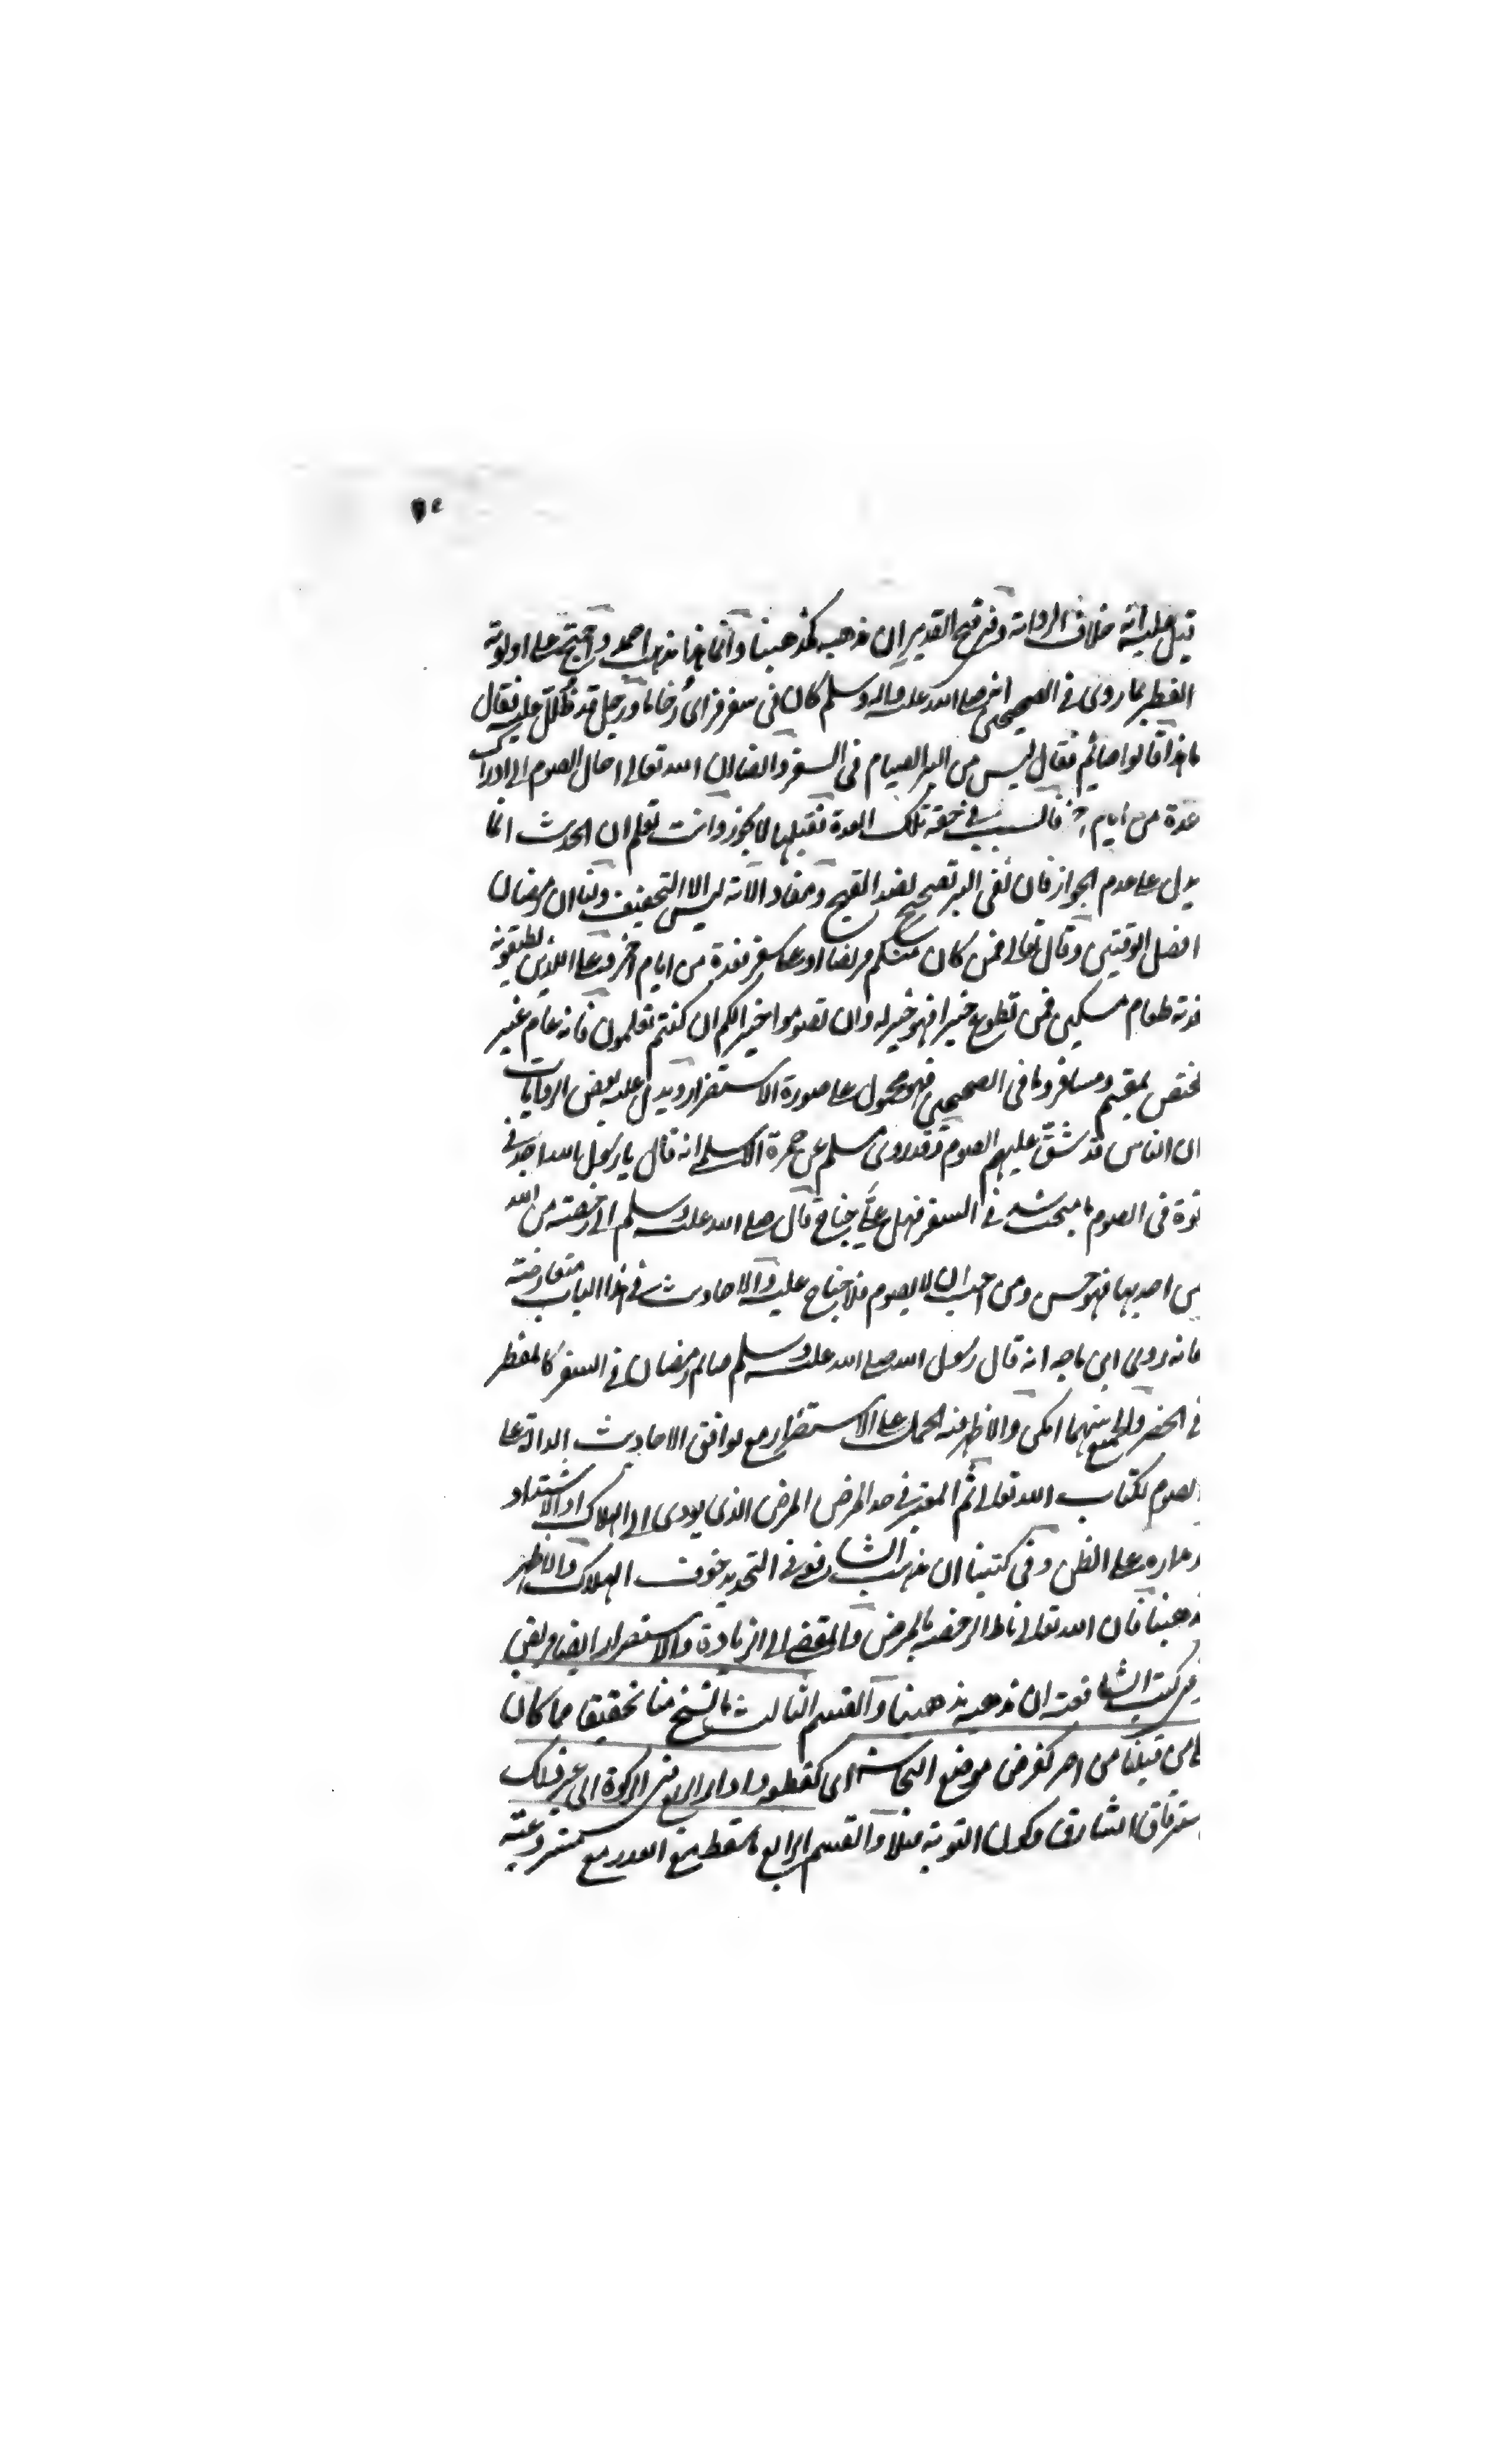 قيل عليه انه خلاف الرواية وفى فتح القدير ان مذهبه كمذهبنا وانما هذا مذهب احمد واحتج على اولوية
الفطر بما روى فى الصحيحين انه صلى الله عليه واله وسلم كان فى سفر فراى زحاما ورجل قد ظلل عليه فقال
ما هذا قالوا صائم فقال ليس من البر الصيام فى السفر وايضا ان الله تعالى احال الصوم الى ادراك
عدة من ايام اخر فالسبب فى حقه تلك العدة فقبلها لا يجوز وانت تعلم ان الحديث انما
يدل على عدم الجواز فان نفى البر تصحيح لضد القبيح ومفاد الآية ليس الا التخفيف ولنا ان رمضان
افضل الوقتين وقال تعالى فمن كان منكم مريضا او على سفر فعدة من ايام اخر وعلى الذين يطيقونه
فدية طعام مسكين فمن تطوع خيرا فهو خير له وان تصوموا خير لكم ان كنتم تعلمون فانه عام غير
مختص بمقيم ومسافر وما فى الصحيحين فهو محمول على صورة الاستضرار ويدل عليه بعض الروايات
ان الناس قد شق عليهم الصوم وقد روى مسلم عن حمزة الاسلمى انه قال يا رسول الله اجد فى
قوة فى الصوم فى السفر فهل على جناح قال صلى الله عليه وسلم رخصة من الله
فمن اخذ بها فهو حسن ومن احب ان لا يصوم فلا جناح عليه والاحاديث فى هذا الباب متعارضة
فانه روى ابن ماجه انه قال رسول الله صلى الله عليه وسلم صائم رمضان فى السفر كالمفطر
فى الحضر والجمع بينهما امكن والاظهر فيه الحمل على الاستضرار مع توافق الاحاديث الدالة على
الصوم لكتاب الله تعالى ثم المعتبر فى حد المرض المرض الذى يودى الى الهلاك او الاشتداد
على الظن وفى كتبنا ان مذهب الشافعى فى التحديد خوف الهلاك والاظهر
مذهبنا فان الله تعالى ناط الرخصة بالمرض والمفضى الى الزيادة والاستضرار ايضا مرض
كتب الشافعية ان مذهبه مذهبنا والقسم الثالث ما نسخ عنا تخفيفا مما كان
على من قبلنا من اصر كقرض موضع النجاسة اى كقطعه واداء الربع فى الزكوة الى غير ذلك
استرقاق السارق وكون التوبة قتلا والقسم الرابع ما سقط مع العذر مع مشروعيته